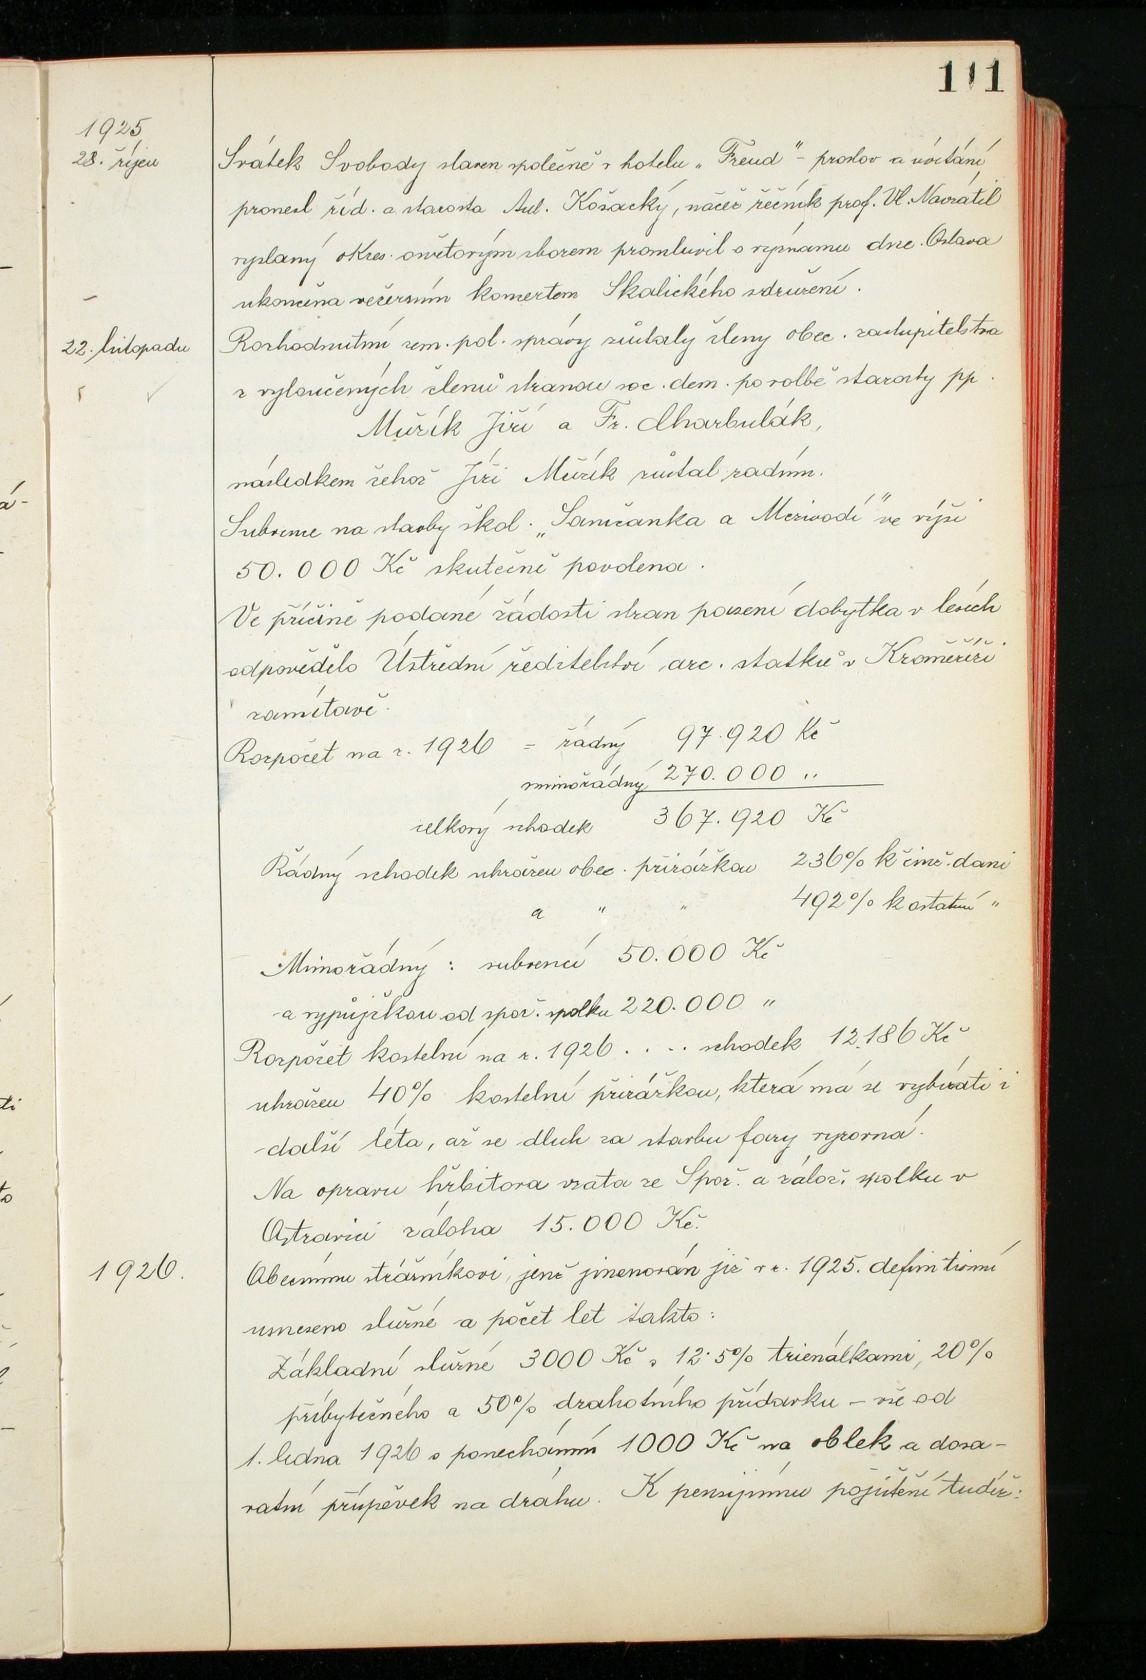 111
1925
28. říjen
Svátek Svobody slaven společně v hotelu „Freud" – proslov a uvítání
pronesl říd. a starosta Aul. Košacký, načež řečník prof. Vl. Navrátil
vyslaný okres. osvětovým sborem promluvil o významu dne. Oslava
ukončena večerním koncertem Skalického sdružení.
22. listopadu
Rozhodnutím zem. pol. správy zůstaly členy obec. zastupitelstva
z vyloučených členů stranou soc. dem. po volbě starosty pp.
Mužík Jiří a Fr. Charbulák,
následkem čehož Jiří Mužík zůstal radním.
Subvence na stavby škol. „Samčanka a Mezivodí" ve výši
50.000 Kč skutečně povolena.
Ve příčině podané žádosti stran pasení dobytka v lesích
odpovědělo Ústřední ředitelství arc. statků v Kroměříži
zamítavě.
Rozpočet na r. 1926 = řádný 97.920 Kč
mimořádný 270.000 "
celkový schodek 367.920 Kč
Řádný schodek uhražen obec. přirážkou 236% k činž. dani
a " " 492% k ostatní "
Mimořádný: subvencí 50.000 Kč
a výpůjčkou od spoř. spolku 220.000 "
Rozpočet kostelní na r. 1926 . . . . schodek 12.186 Kč
uhražen 40% kostelní přirážkou, která má se vybírati i
další léta, až se dluh za stavbu fary vyrovná.
Na opravu hřbitova vzata ze Spoř. a zálož. spolku v
Ostravici záloha 15.000 Kč.
1926.
Obecnímu strážníkovi, jenž jmenován již v r. 1925. definitivní
usneseno služné a počet let takto:
Základní služné 3000 Kč s 12·5% trienálkami, 20%
příbytečného a 50% drahotního přídavku – vše od
1. ledna 1926 s ponecháním 1000 Kč na oblek a dosa-
vatní příspěvek na dráhu. K pensijnímu pojištění tudíž: